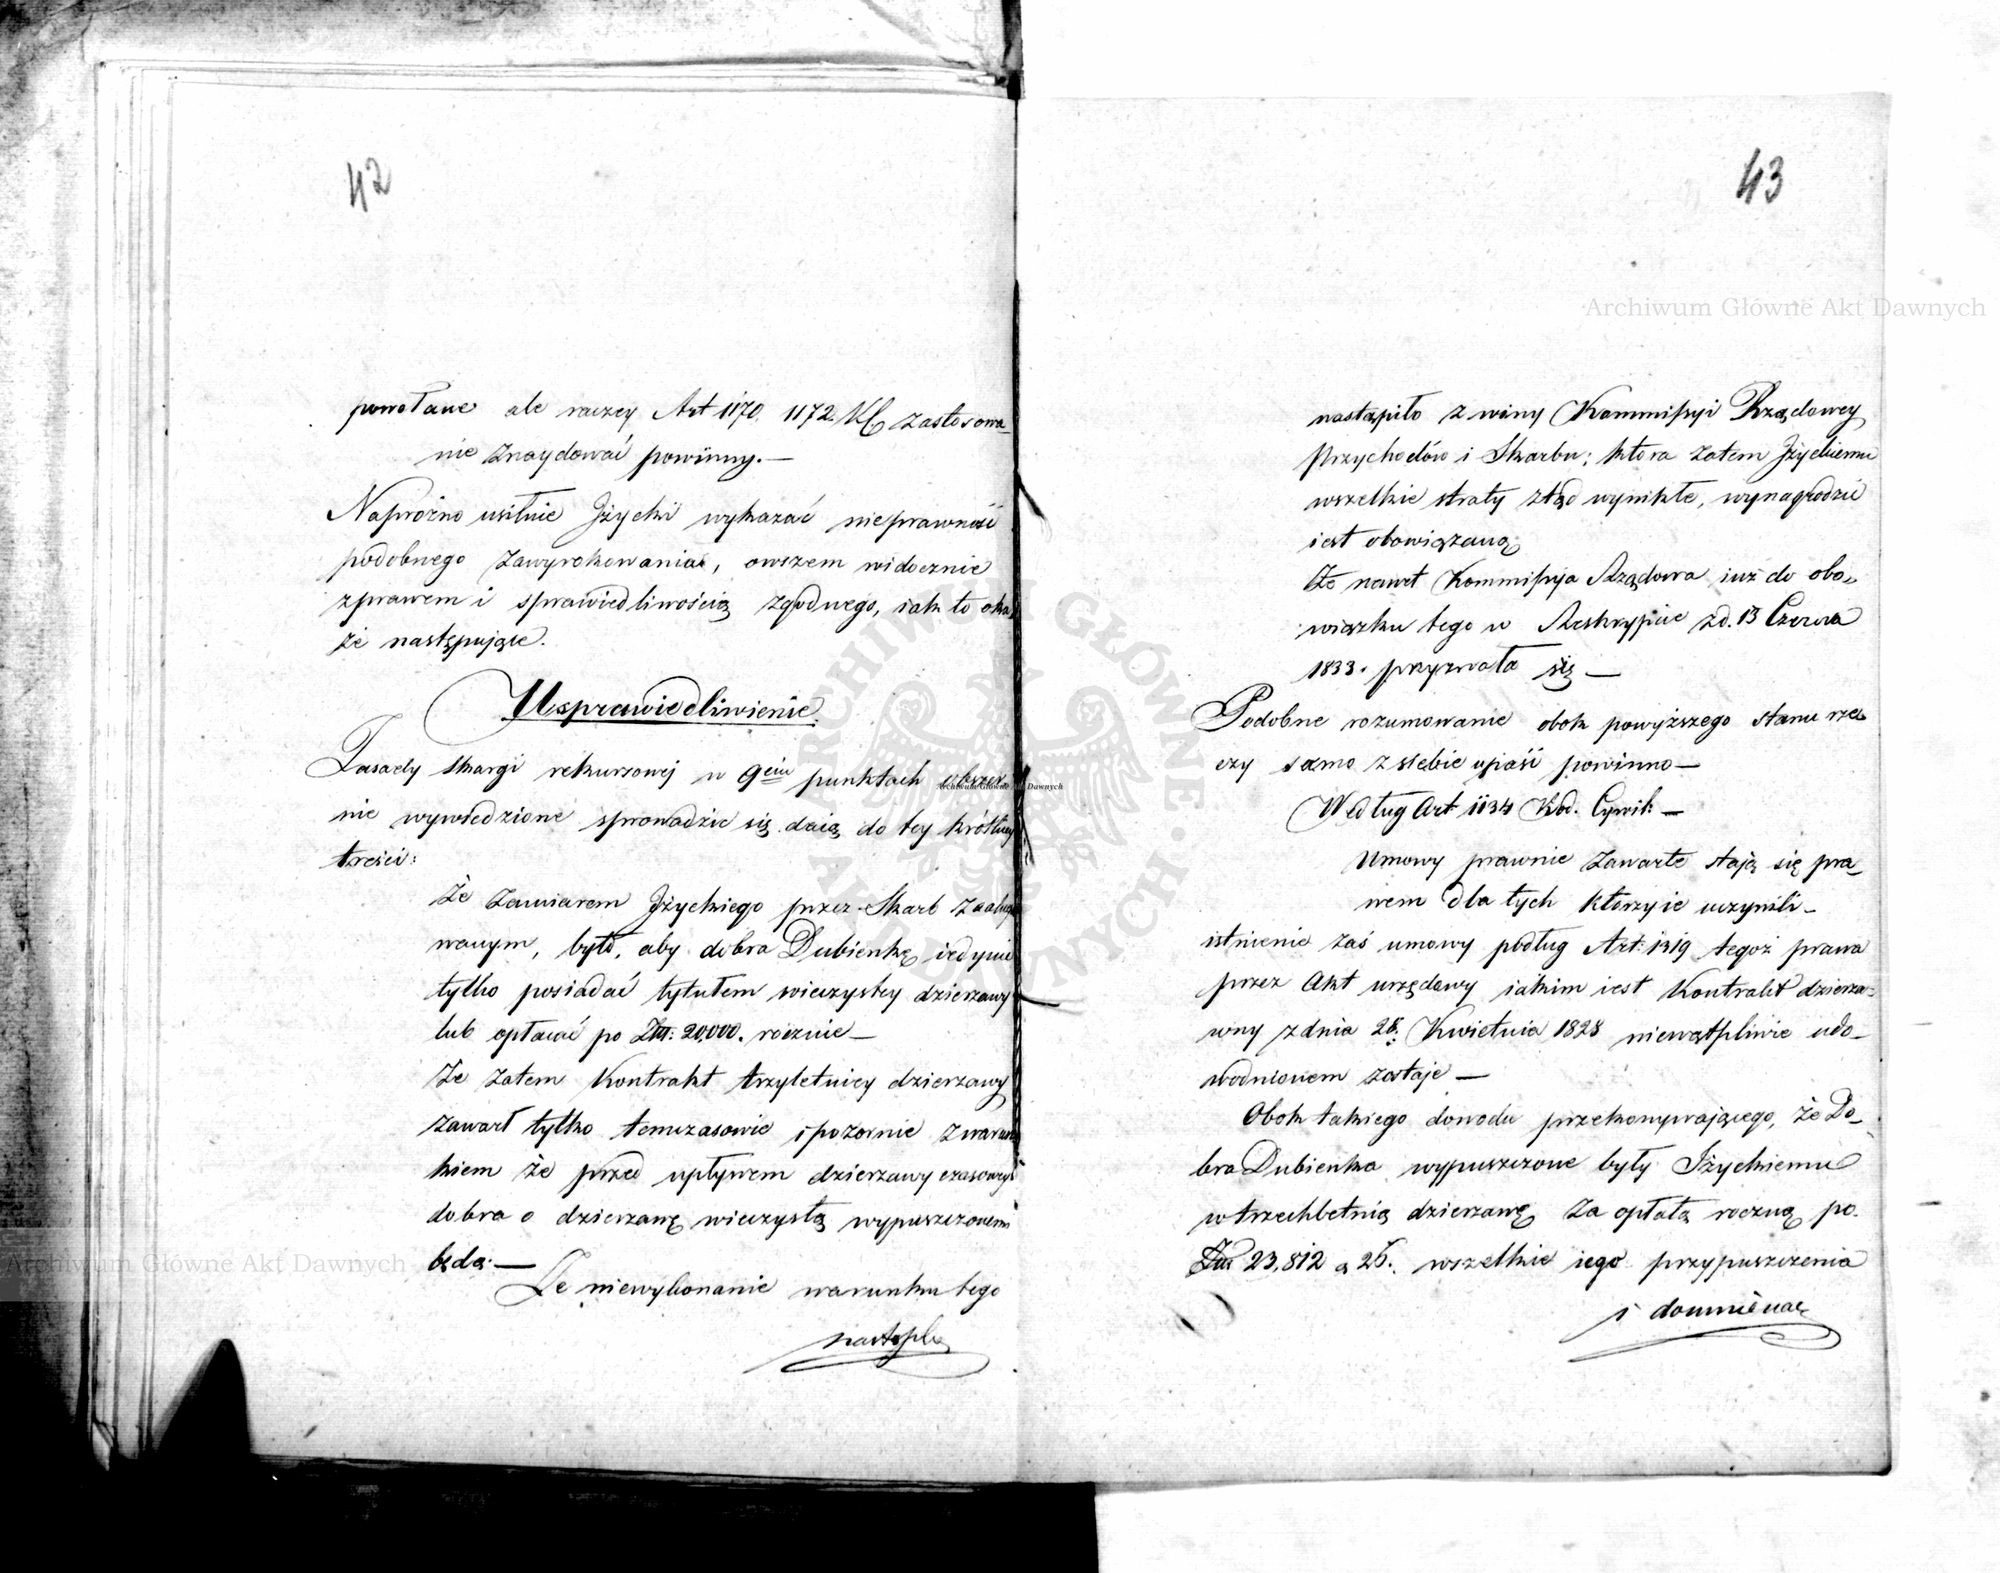 42
powołane ale raczey Art 1170. 1172. KC. zastosowa
nie znaydować powinny.—
Napróżno usiłuie Iżycki wykazać nieprawność
podobnego zawyrokowania, owszem widocznie
z prawem i sprawiedliwością zgodnego, iak to oka
że następujące.
Usprawiedliwienie
Zasady skargi rekursowej w 9ciu punktach obszer
nie wywiedzione sprowadzić się daią do tey krótkiey
treści:
Że zamiarem Iżyckiego przez Skarb
wanym, było, aby dobra Dubienkę iedynie
tylko posiadać tytułem wieczystey dzierzawy
lub opłacać po Złt: 20,000. rocznie—
Że zatem Kontrakt trzyletniey dzierzawy
zawarł tylko temczasowie i pozornie z warun
kiem że przed upływem dzierzawy czasowey
dobra o dzierzawę wieczystą wypuszczonemi
będą:—
Że niewykonanie warunku tego
nastąpiło
43
nastąpiło z winy Kommissyi Rządowey
Przychodów i Skarbu; która zatem Iżyckiemu
wszelkie straty ztąd wynikłe, wynagrodzić
iest obowiązaną
Że nawet Kommissya Rządowa iuż do obo
wiązku tego w Reskrypcie z d. 13 Czerwca
1833. przyznała się—
Podobne rozumowanie obok powyższego stanu rze
czy samo z siebie upaść powinno—
Według Art 1134 Kod. Cywil:—
Umowy prawnie zawarte stają się pra
wem dla tych którzy ie uczynili—
istnienie zaś umowy podług Art: 1319 tegoż prawa
przez Akt urzędowy iakim iest Kontrakt dzierza
wny z dnia 28. Kwietnia 1828 niewątpliwie udo—
wodnionem zostaje—
Obok takiego dowodu przekonywającego, że Do—
bra Dubienka wypuszczone były Iżyckiemu
w trzechletnią dzierzawę za opłatą roczną po.
Złt 23,812 g 25. wszelkie iego przypuszczenia
i domniemane
Archiwum Główne Akt Dawnych
Archiwum Główne Akt Dawnych
Archiwum Główne Akt Dawnych
ARCHIWUM GŁÓWNE AKT DAWNYCH